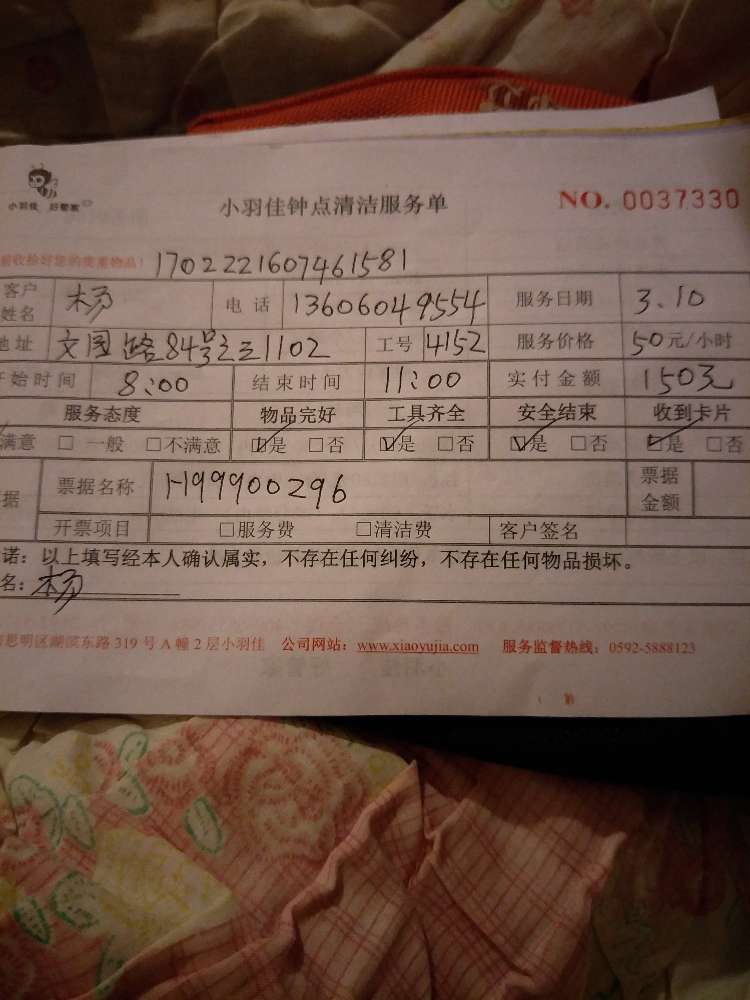 小羽佳 好管家
小羽佳钟点清洁服务单 NO. 0037330
验收拾好您的贵重物品! 1702221607461581
客户姓名 杨 电话 13606049554 服务日期 3.10
地址 文园路84号之三1102 工号 4152 服务价格 50元/小时
开始时间 8:00 结束时间 11:00 实付金额 150元
服务态度 物品完好 工具齐全 安全结束 收到卡片
满意 □一般 □不满意 ☑是 □否 ☑是 □否 ☑是 □否 ☑是 □否
据 票据名称 H99900296 票据金额
开票项目 □服务费 □清洁费 客户签名
诺:以上填写经本人确认属实,不存在任何纠纷,不存在任何物品损坏。
名:杨
思明区湖滨东路319号A幢2层小羽佳 公司网站:www.xiaoyujia.com 服务监督热线:0592-5888123